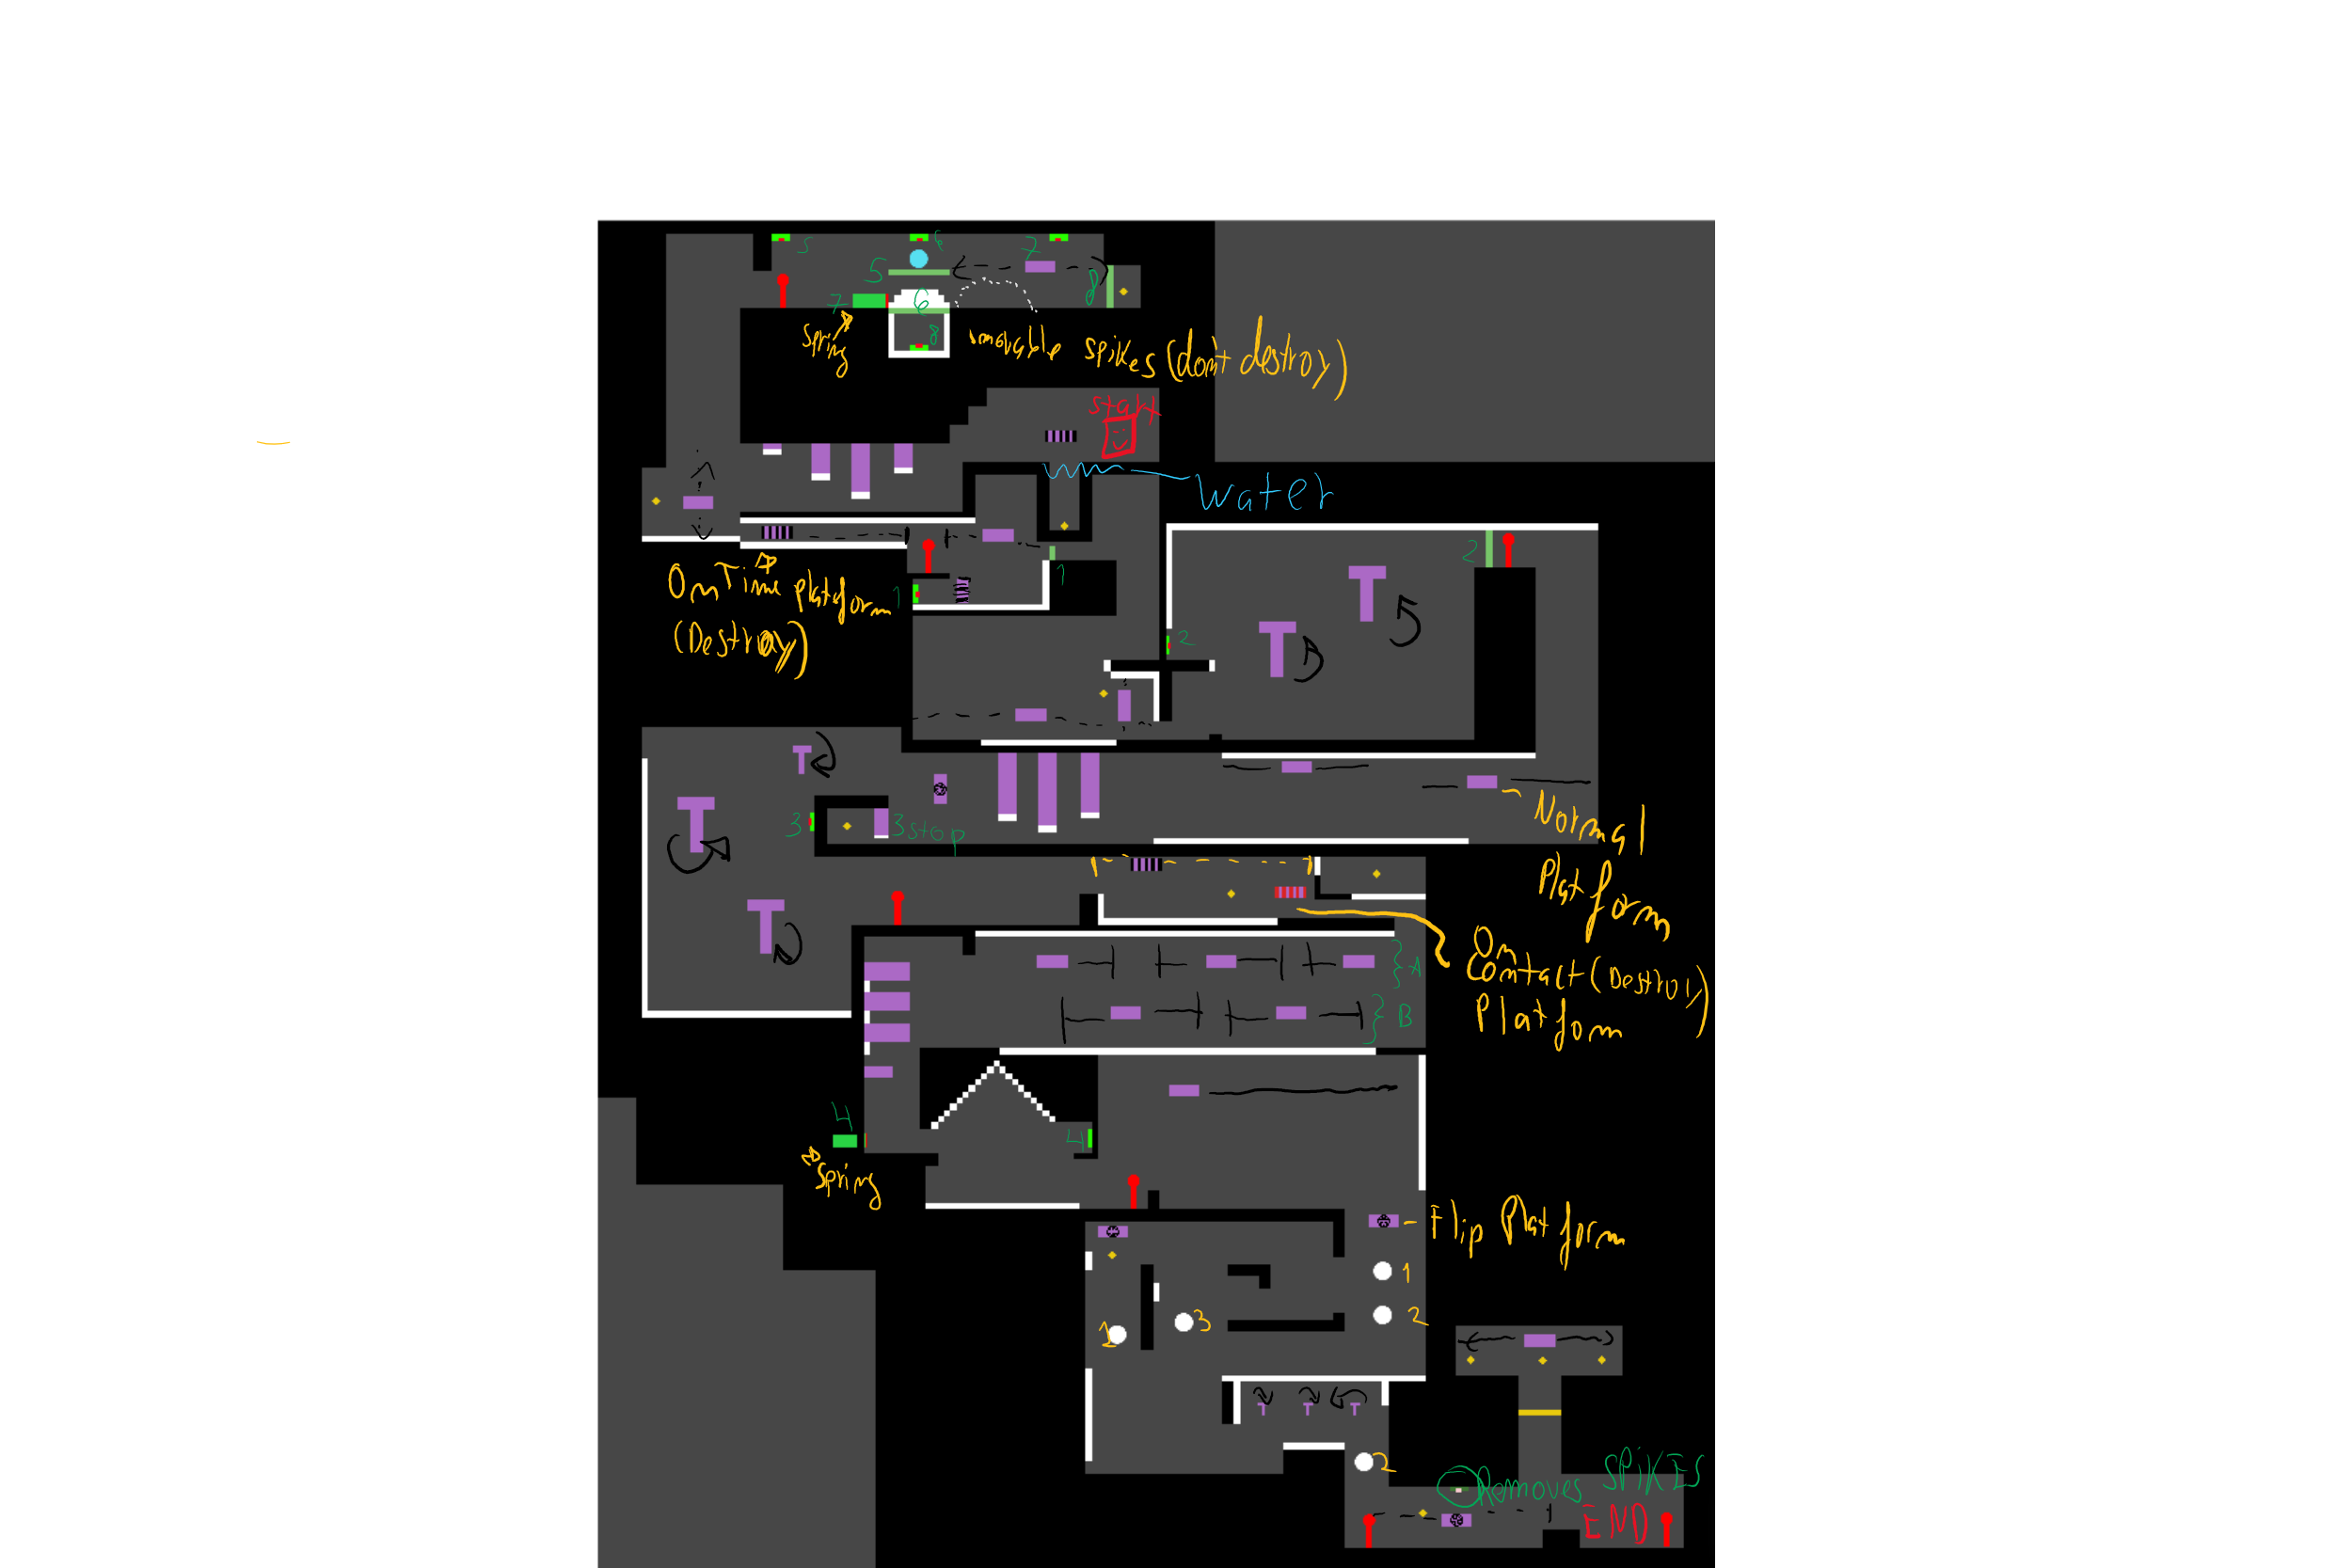 5
6
7
5
8
7
6
spring
8
movable spikes (dont destroy)
start
water
2
OnTime platform
(Destroy)
1
1
2
3
3 stop
Normal
Platform
On
Contact (Destroy)
Platform
A
B
4
4
Spring
Flip Platform
1
2
3
1
2
Removes SPIKES
END